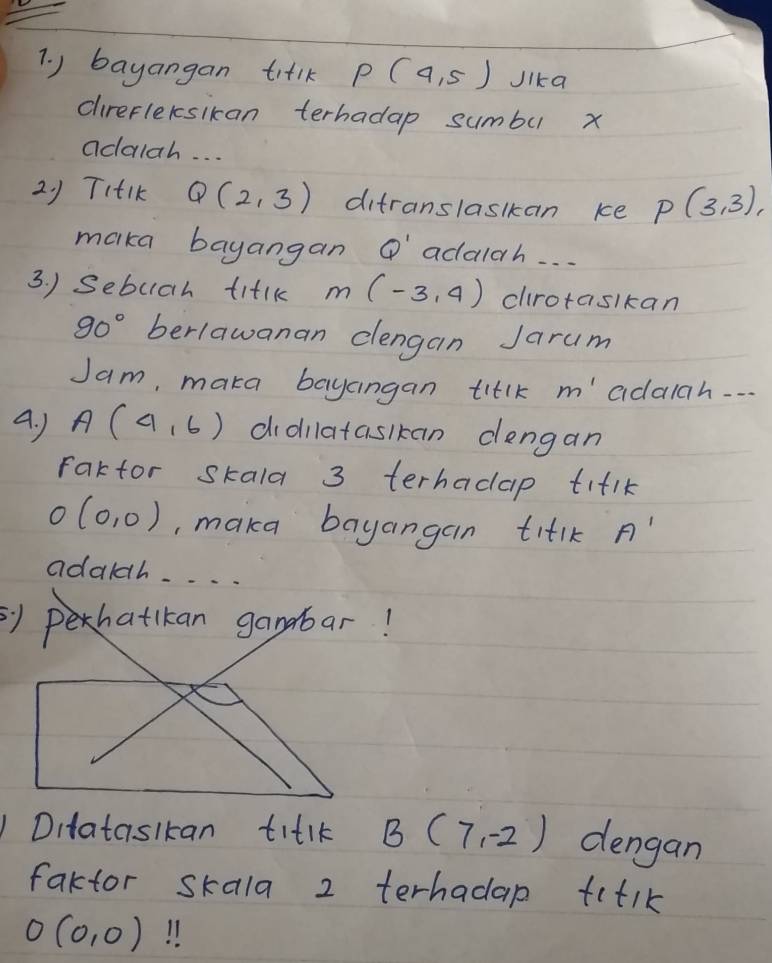 1.) bayangan titik P (4,5) Jika
direfleksikan terhadap sumbu x
adalah...
2.) Titik Q (2,3) ditranslasikan ke P(3,3),
maka bayangan Q' adalah...
3.) Sebuah titik m (-3,4) dirotasikan
90° berlawanan dengan Jarum
Jam, maka bayangan titik m' adalah...
4.) A (4,6) didilatasikan dengan
Faktor skala 3 terhadap titik
O (0,0), maka bayangan titik A'
adalah....
5.) perhatikan gambar !
) Dilatasikan titik B (7,-2) dengan
faktor skala 2 terhadap titik
O (0,0) !!